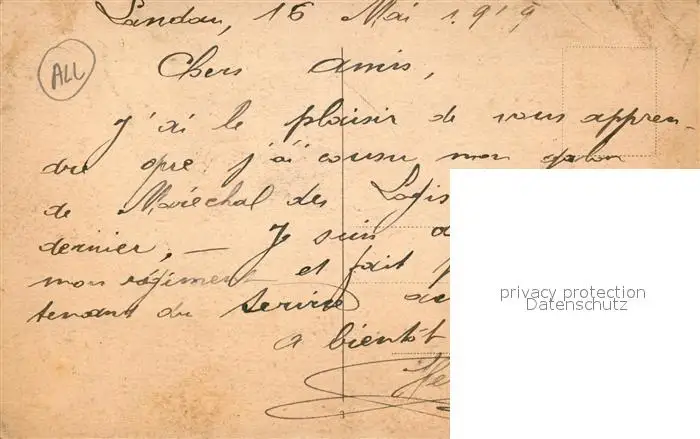 Landau, 16 Mai 1919
ALL
Chers amis,
J'ai le plaisir de vous appren-
dre que j'ai cousu mon galon
de Maréchal des Logis
dernier, — Je suis
mon régiment et fait
tenant du service au
a bientôt
He
privacy protection
Datenschutz